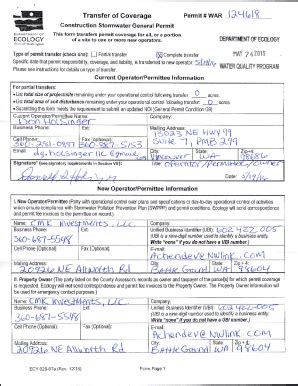 DEPARTMENT OF
ECOLOGY
State of Washington
Transfer of Coverage Permit # WAR 124618
Construction Stormwater General Permit
This form transfers permit coverage for all, or a portion
of a site to one or more new operators.
DEPARTMENT OF ECOLOGY
MAY 24 2016
WATER QUALITY PROGRAM
Type of permit transfer (check one): Partial transfer Complete transfer
Specific date that permit responsibility, coverage, and liability, is transferred to new operator:
Please see instructions for details on type of transfer.
Current Operator/Permittee Information
For partial transfers:
List total size of project/site remaining under your operational control following transfer 0 acres.
List total area of soil disturbance remaining under your operational control following transfer 0 acres.
Submitting this form meets the requirement to submit an updated NOI (Special Permit Condition G9)
Current Operator/Permittee Name: Company:
Don Holsinger
Business Phone: Ext: Mailing Address:
13023 NE HWY 99
Cell Phone: Fax (optional): Suite 7, PMB 299
Email: City: State: Zip+4:
Vancouver WA 98686
Signature* (see signatory requirements in Section VII): Title: Date:
New Operator/Permittee Information
I. New Operator/Permittee (Party with operational control over plans and specifications or day-to-day operational control of activities
which ensure compliance with Stormwater Pollution Prevention Plan (SWPPP) and permit conditions. Ecology will send correspondence
and permit fee invoices to the permittee on record.)
Name: CMK Investments, LLC Company:
Business Phone: Ext: Unified Business Identifier (UBI): 602 422 005
360-687-5548 (UBI is a nine-digit number used to identify a business entity.
Write "none" if you do not have a UBI number.)
Cell Phone (Optional): Fax (Optional): E-mail:
Mailing Address: City: State: Zip + 4:
20926 NE Allworth Rd Battle Ground WA 98604
II. Property Owner (The party listed on the County Assessor's records as owner and taxpayer of the parcel(s) for which permit coverage
is requested. Ecology will not send correspondence and permit fee invoices to the Property Owner. The Property Owner information will
be used for emergency contact purposes.)
Name: CMK Investments, LLC Company:
Business Phone: Ext: Unified Business Identifier (UBI): 602 422 005
360-687-5548 (UBI is a nine-digit number used to identify a business entity.
Write "none" if you do not have a UBI number.)
Cell Phone (Optional): Fax (Optional): E-mail:
Mailing Address: City: State: Zip + 4:
20926 NE Allworth Rd Battle Ground WA 98604
Form Page 1